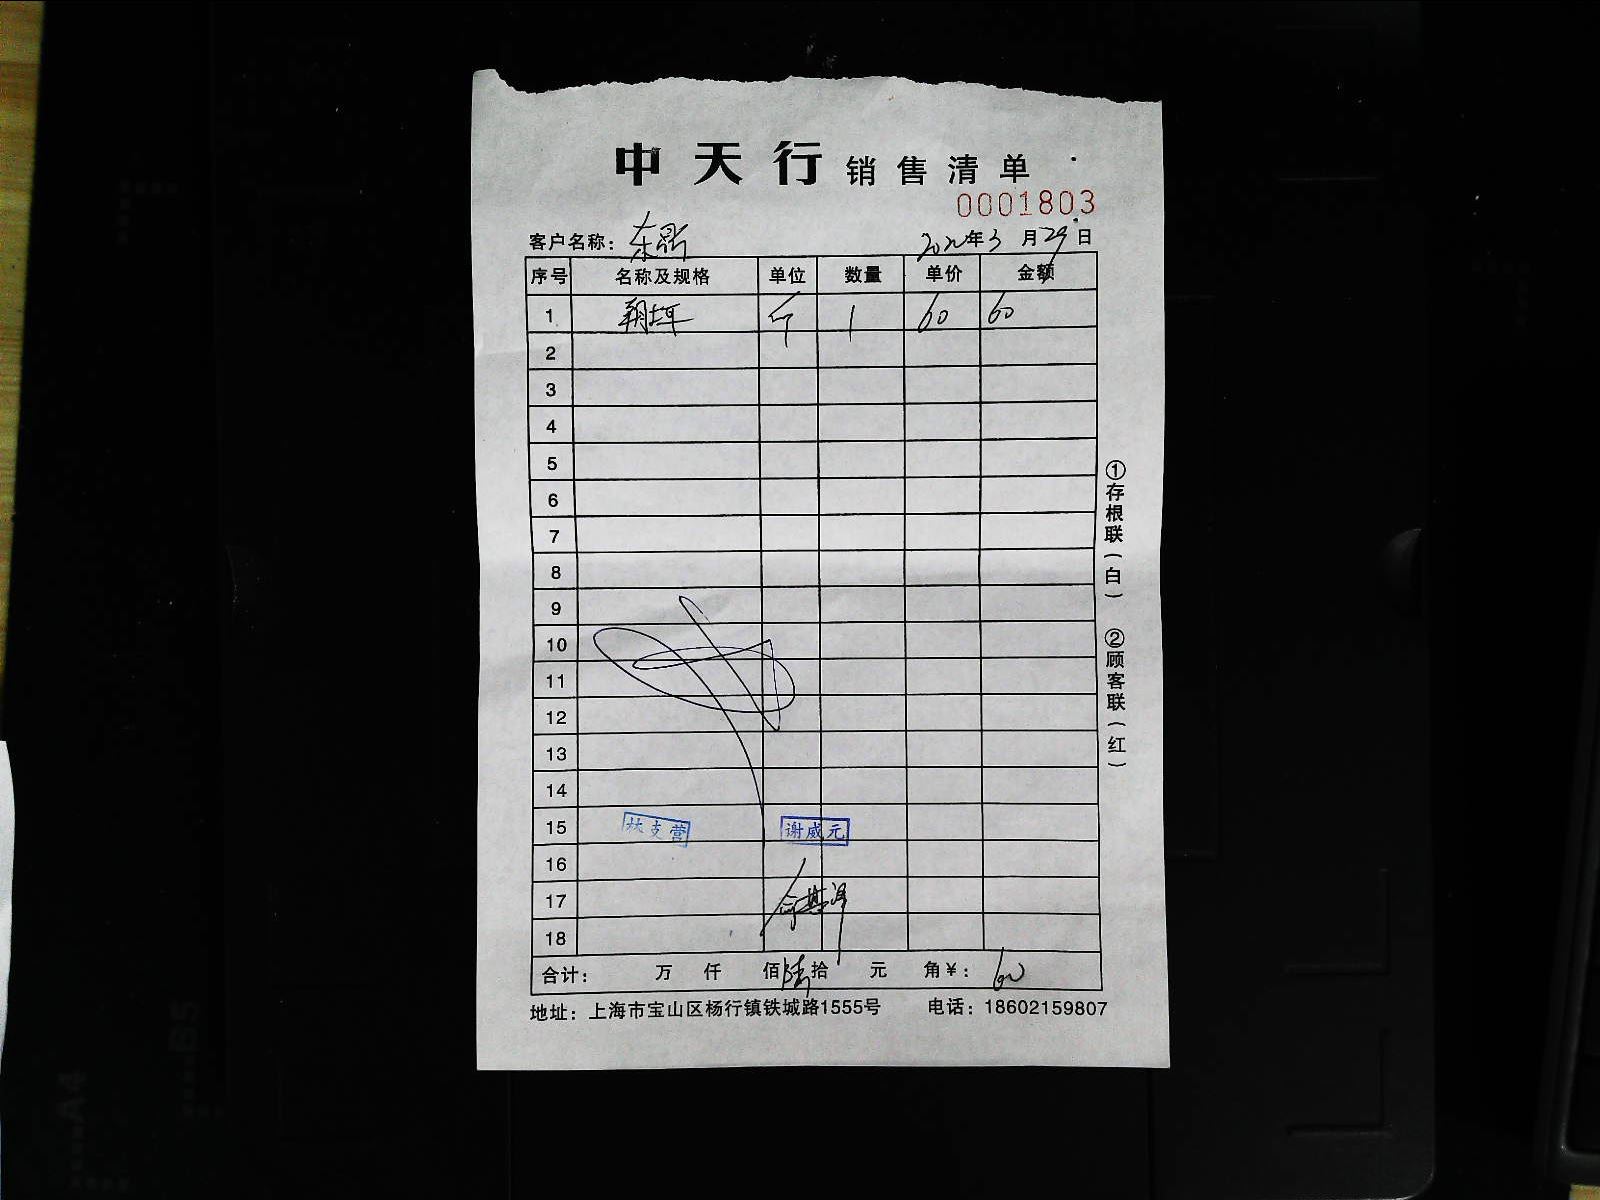 中天行 销售清单
0001803
客户名称：东昂 2022年3月29日
序号 名称及规格 单位 数量 单价 金额
1 斤 1 60 60
2
3
4
5
6
7
8
9
10
11
12
13
14
15 林支营 谢威元
16
17
18
合计： 万 仟 佰 陆拾 元 角￥：60
地址：上海市宝山区杨行镇铁城路1555号 电话：18602159807
①存根联（白） ②顾客联（红）
A4
B5